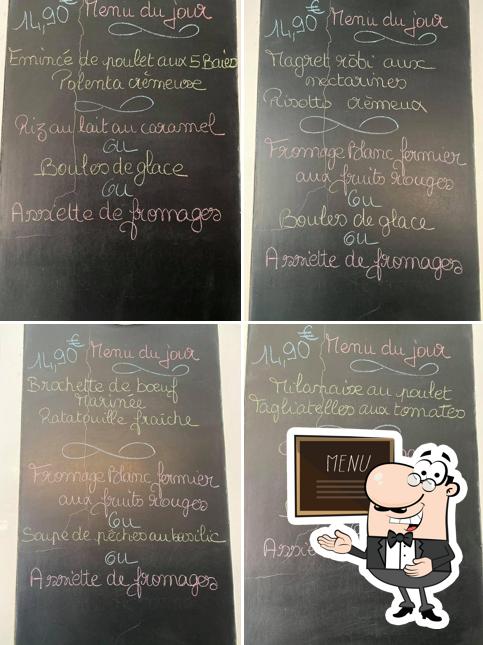 14,90€ Menu du jour
Emincé de poulet aux 5 Baies
Polenta crèmeuse
Riz au lait au caramel
OU
Boules de glace
OU
Assiette de fromages
14,90€ Menu du jour
Magret rôti aux
nectarines
Risotto crèmeux
Fromage Blanc fermier
aux fruits rouges
OU
Boules de glace
OU
Assiette de fromages
14,90€ Menu du jour
Brochette de bœuf
Marinée
Ratatouille fraîche
Fromage Blanc fermier
aux fruits rouges
OU
Soupe de pèches au basilic
OU
Assiette de fromages
14,90€ Menu du jour
Milanaise au poulet
Tagliatelles aux tomates
MENU